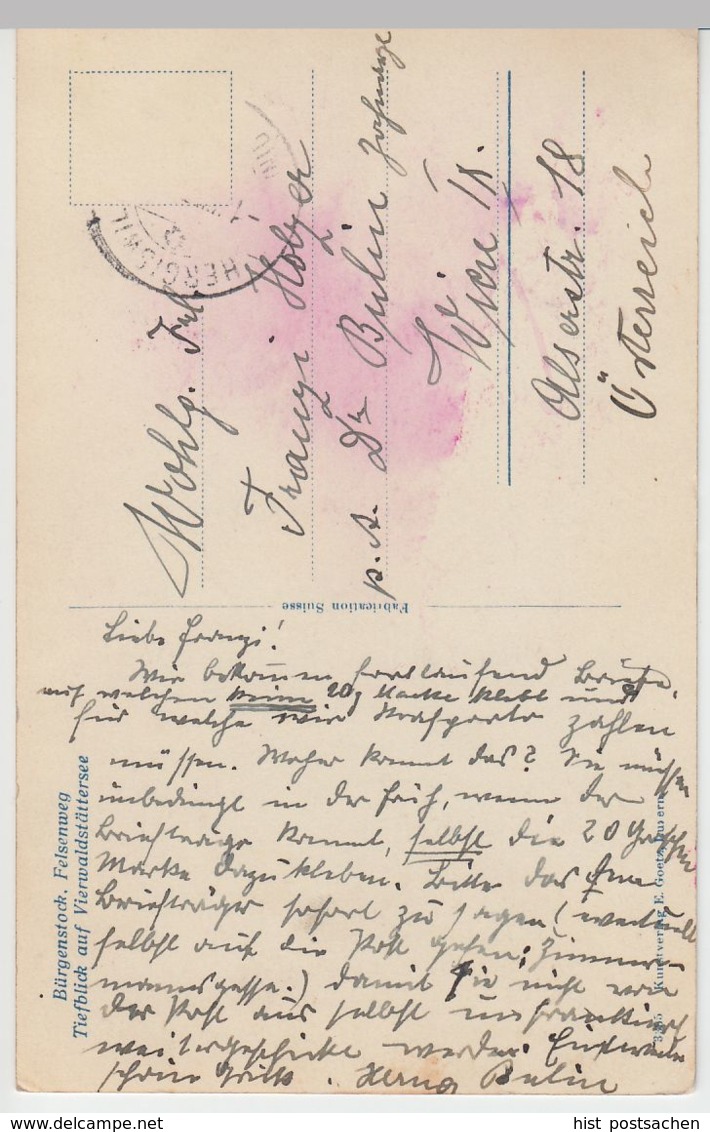 HERGISWIL
Wohlg. Frl.
Franzi Holzer
p. A. Dr Bulin
Wien IX.
Alserstr. 18
Österreich
Fabrication Suisse
Bürgenstock. Felsenweg
Tiefblick auf Vierwaldstättersee
Kunstverlag E. Goetz, Luzern
Liebe Franzi!
Wir bekommen fortlaufend Briefe,
auf welchen keine 20 g Marke klebt und
für welche wir Strafporto zahlen
müssen. Woher kommt das? Sie müssen
unbedingt in der Früh, wenn der
Briefträger kommt, selbst die 20 Groschen
Marke dazukleben. Bitte das dem
Briefträger sofort zu sagen (eventuell
selbst auf die Post gehen: Zimmer-
manngasse.) damit Sie nicht von
der Post aus selbst unfrankiert
weitergeschickt werden.
schöne Grüße. Bulin
hist postsachen